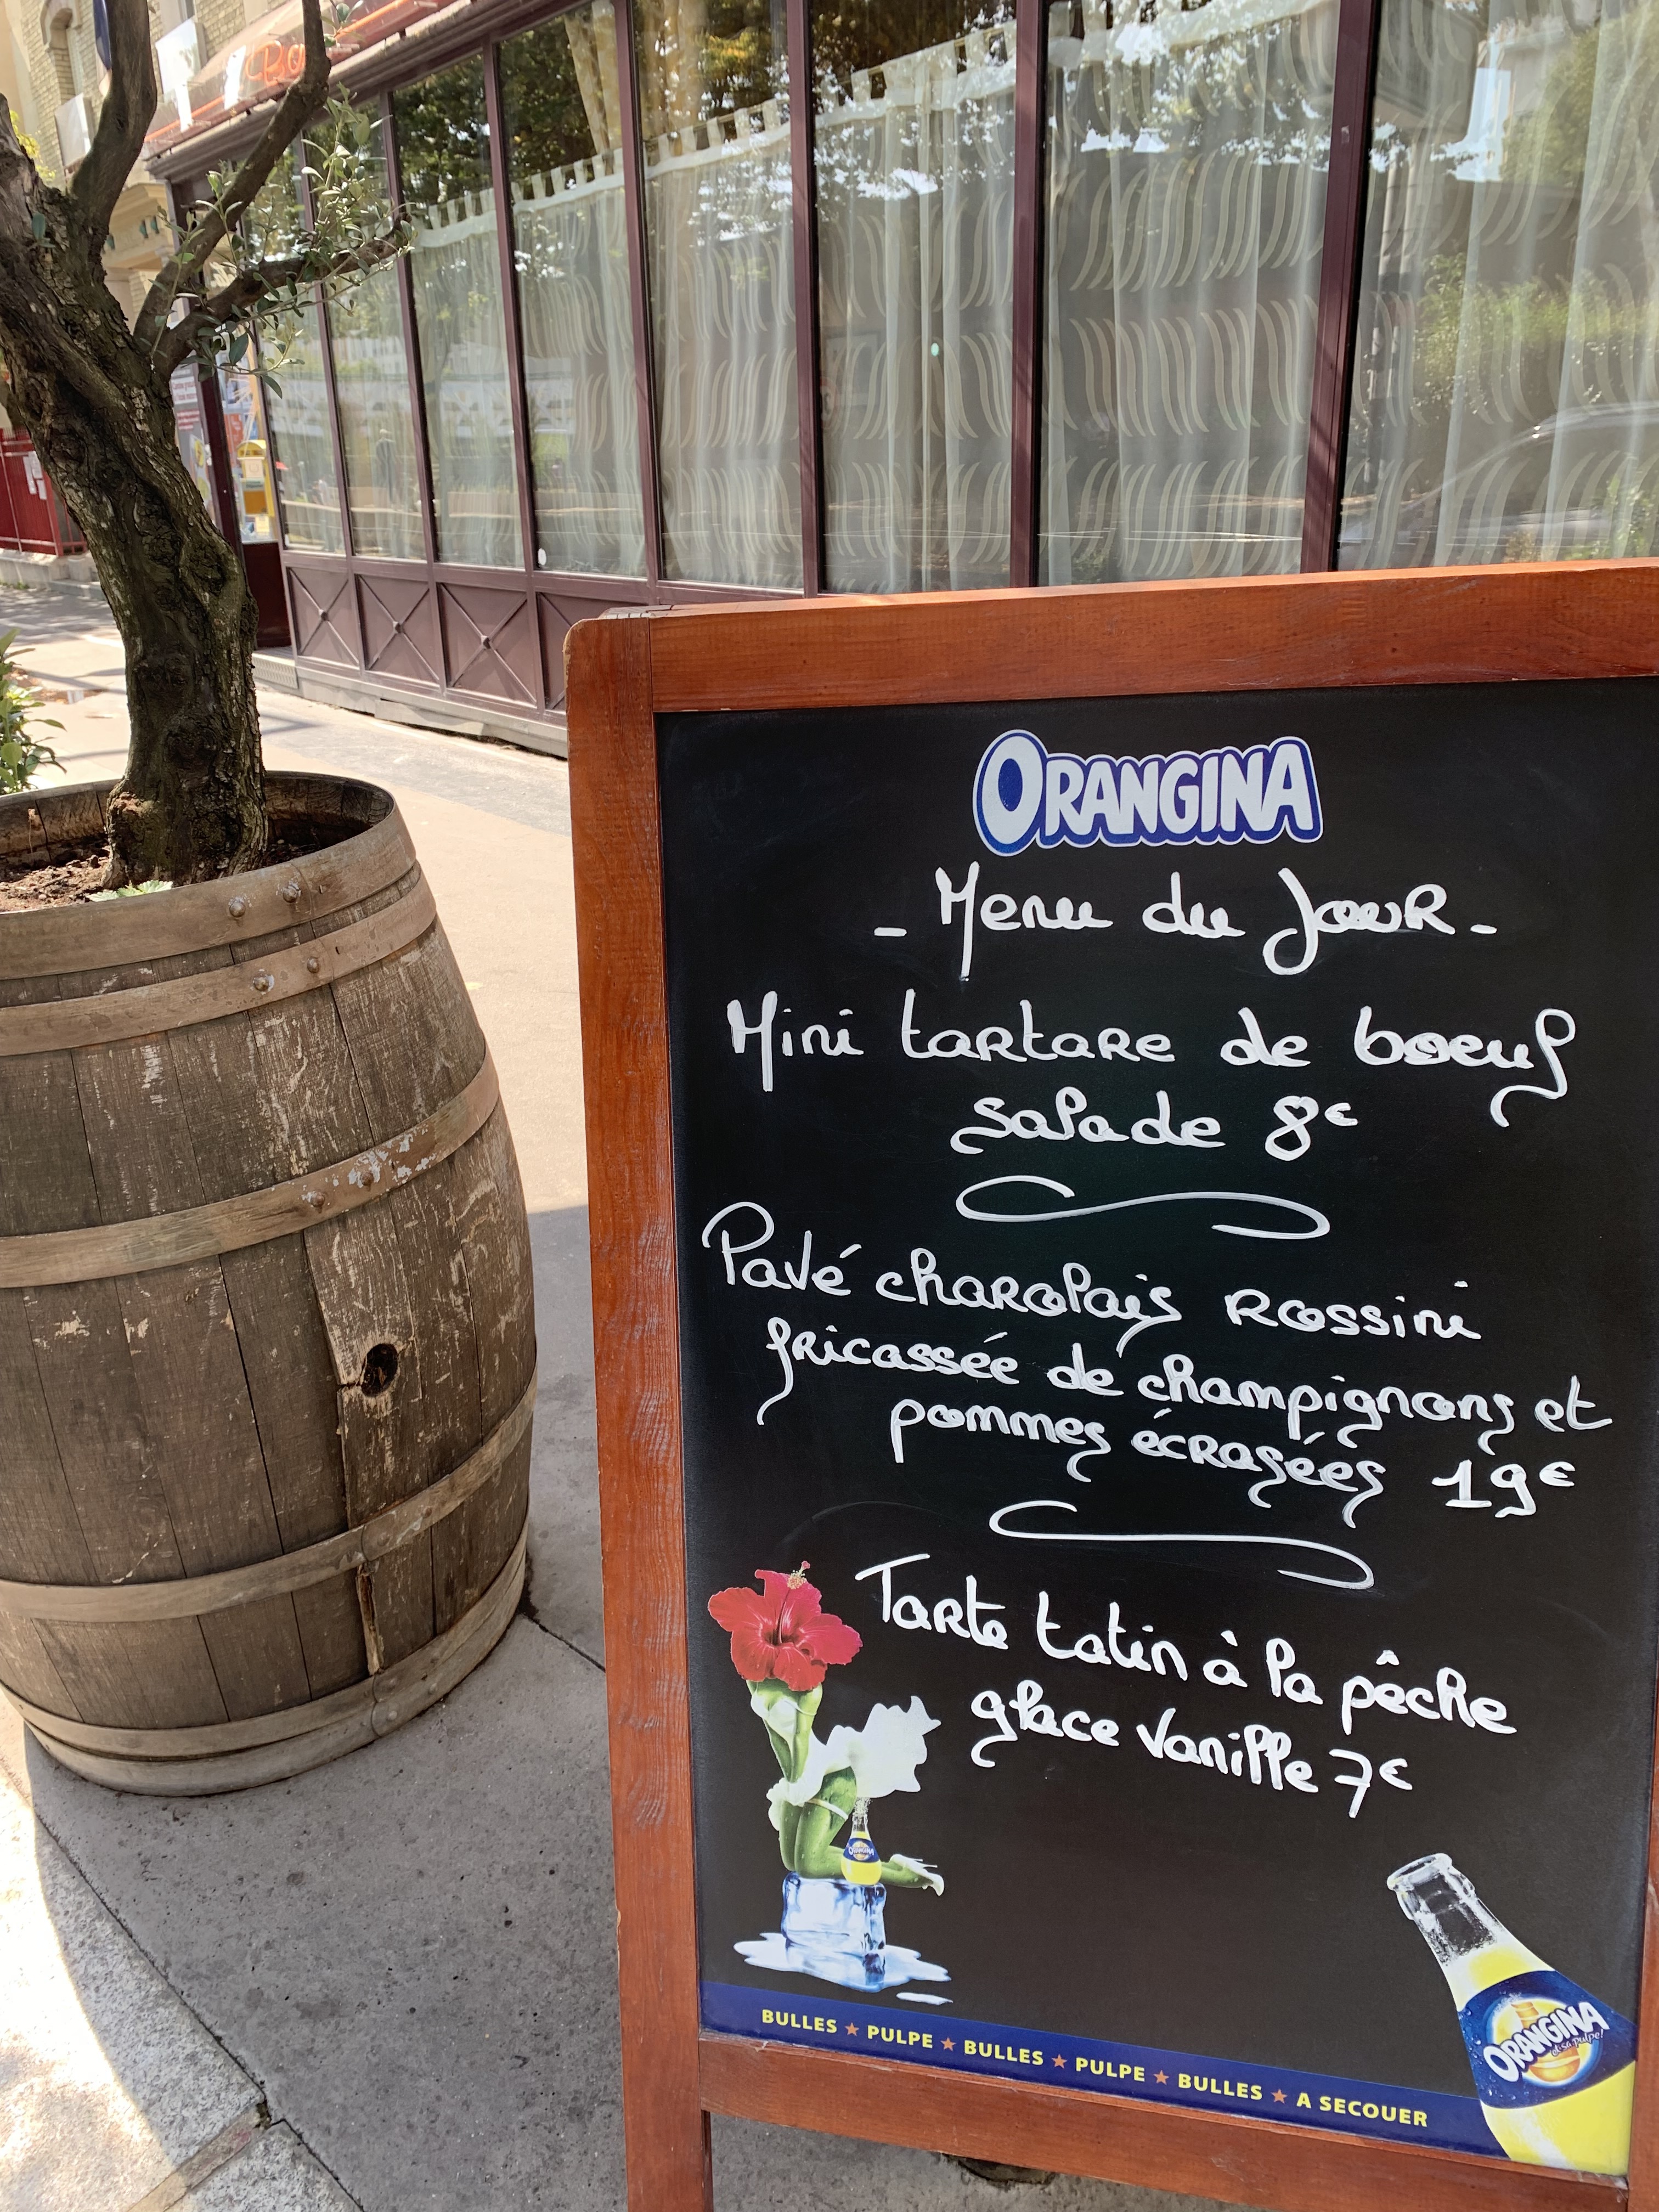 ORANGINA
- Menu du Jour -
Mini tartare de boeuf
salade 8€
Pavé charolais Rossini
fricassée de champignons et
pommes écrasées 19€
Tarte tatin à la pêche
glace Vanille 7€
BULLES ★ PULPE ★ BULLES ★ PULPE ★ BULLES ★ A SECOUER
ORANGINA
et sa pulpe!
ORANGINA